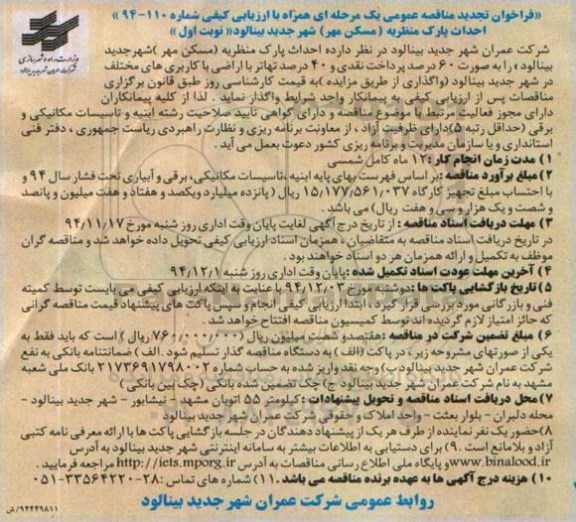 «فراخوان تجدید مناقصه عمومی یک مرحله ای همراه با ارزیابی کیفی شماره ۱۱۰-۹۴
احداث پارک منظریه ( مسکن مهر) شهر جدید بینالود»« نوبت اول »
وزارت راه و شهرسازی
شرکت عمران شهر جدید بینالود
شرکت عمران شهر جدید بینالود در نظر دارد« احداث پارک منظریه (مسکن مهر )شهرجدید
بینالود » را به صورت ۶۰ درصد پرداخت نقدی و ۴۰ درصد تهاتر با اراضی با کاربری های مختلف
در شهر جدید بینالود (واگذاری از طریق مزایده )به قیمت کارشناسی روز طبق قانون برگزاری
مناقصات پس از ارزیابی کیفی به پیمانکار واجد شرایط واگذار نماید . لذا از کلیه پیمانکاران
دارای مجوز فعالیت مرتبط با موضوع مناقصه و دارای گواهی تایید صلاحیت رشته ابنیه و تاسیسات مکانیکی و
برقی (حداقل رتبه ۵)دارای ظرفیت آزاد ، از معاونت برنامه ریزی و نظارت راهبردی ریاست جمهوری ، دفتر فنی
استانداری و یا سازمان مدیریت و برنامه ریزی کشور دعوت بعمل می آید .
۱) مدت زمان انجام کار :۱۲ ماه کامل شمسی
۲)مبلغ برآورد مناقصه :بر اساس فهرست بهای پایه ابنیه ،تاسیسات مکانیکی، برقی و آبیاری تحت فشار سال ۹۴ و
با احتساب مبلغ تجهیز کارگاه ۱۵,۱۷۷,۵۶۱,۰۳۷ ریال ( پانزده میلیارد ویکصد و هفتاد و هفت میلیون و پانصد
و شصت و یک هزار و سی و هفت ریال) می باشد .
۳) مهلت دریافت اسناد مناقصه : از تاریخ درج آگهی لغایت پایان وقت اداری روز شنبه مورخ ۹۴,۱۱,۱۷
در تاریخ دریافت اسناد مناقصه به متقاضیان ، همزمان اسناد ارزیابی کیفی تحویل داده خواهد شد و مناقصه گران
موظف به تکمیل و ارائه همزمان هر دو اسناد خواهند بود .
۴) آخرین مهلت عودت اسناد تکمیل شده :پایان وقت اداری روز شنبه ۹۴,۱۲,۱
۵) تاریخ بازگشایی پاکت ها :دوشنبه مورخ ۹۴,۱۲,۰۳ با عنایت به اینکه ارزیابی کیفی می بایست توسط کمیته
فنی و بازرگانی مورد بررسی قرار گیرد ، ابتدا ارزیابی کیفی انجام و سپس پاکت های پیشنهاد قیمت مناقصه گرانی
که حائز امتیاز لازم گردیده اند توسط کمیسیون مناقصه افتتاح خواهد شد
۶) مبلغ تضمین شرکت در مناقصه :هفتصد و شصت میلیون ریال (۷۶۰,۰۰۰,۰۰۰ ریال ) است که باید فقط به
یکی از صورتهای مشروحه زیر ، در پاکت (الف ) به دستگاه مناقصه گذار تسلیم شود .الف ) ضمانتنامه بانکی به نفع
شرکت عمران شهر جدید بینالود ب) وجه نقد واریز شده به حساب شماره ۲۱۷۳۶۹۱۷۹۸۰۰۲ بانک ملی شعبه
مشهد به نام شرکت عمران شهر جدید بینالود ج) چک تضمین شده بانکی (چک بین بانکی )
۷)محل دریافت اسناد مناقصه و تحویل پیشنهادات :کیلومتر ۵۵ اتوبان مشهد - نیشابور - شهر جدید بینالود -
محله دلیران - بلوار بعثت - واحد املاک و حقوقی شرکت عمران شهر جدید بینالود
۸)حضور یک نفر نماینده از طرف هر یک از پیشنهاد دهندگان در جلسه بازگشایی پاکت ها با ارائه معرفی نامه کتبی
آزاد و بلامانع است .۹) برای دستیابی به اطلاعات بیشتر به سامانه اینترنتی شهر جدید بینالود به آدرس
www.binalood.ir و پایگاه ملی اطلاع رسانی مناقصات به آدرس http://iets.mporg.ir مراجعه فرمایید .
۱۰) هزینه درج آگهی ها به عهده برنده مناقصه می باشد .۱۱)شماره های تماس :۲۸-۳۳۵۶۴۲۲۰-۰۵۱
روابط عمومی شرکت عمران شهر جدید بینالود
۹۴۴۴۹۸۱۱/ش